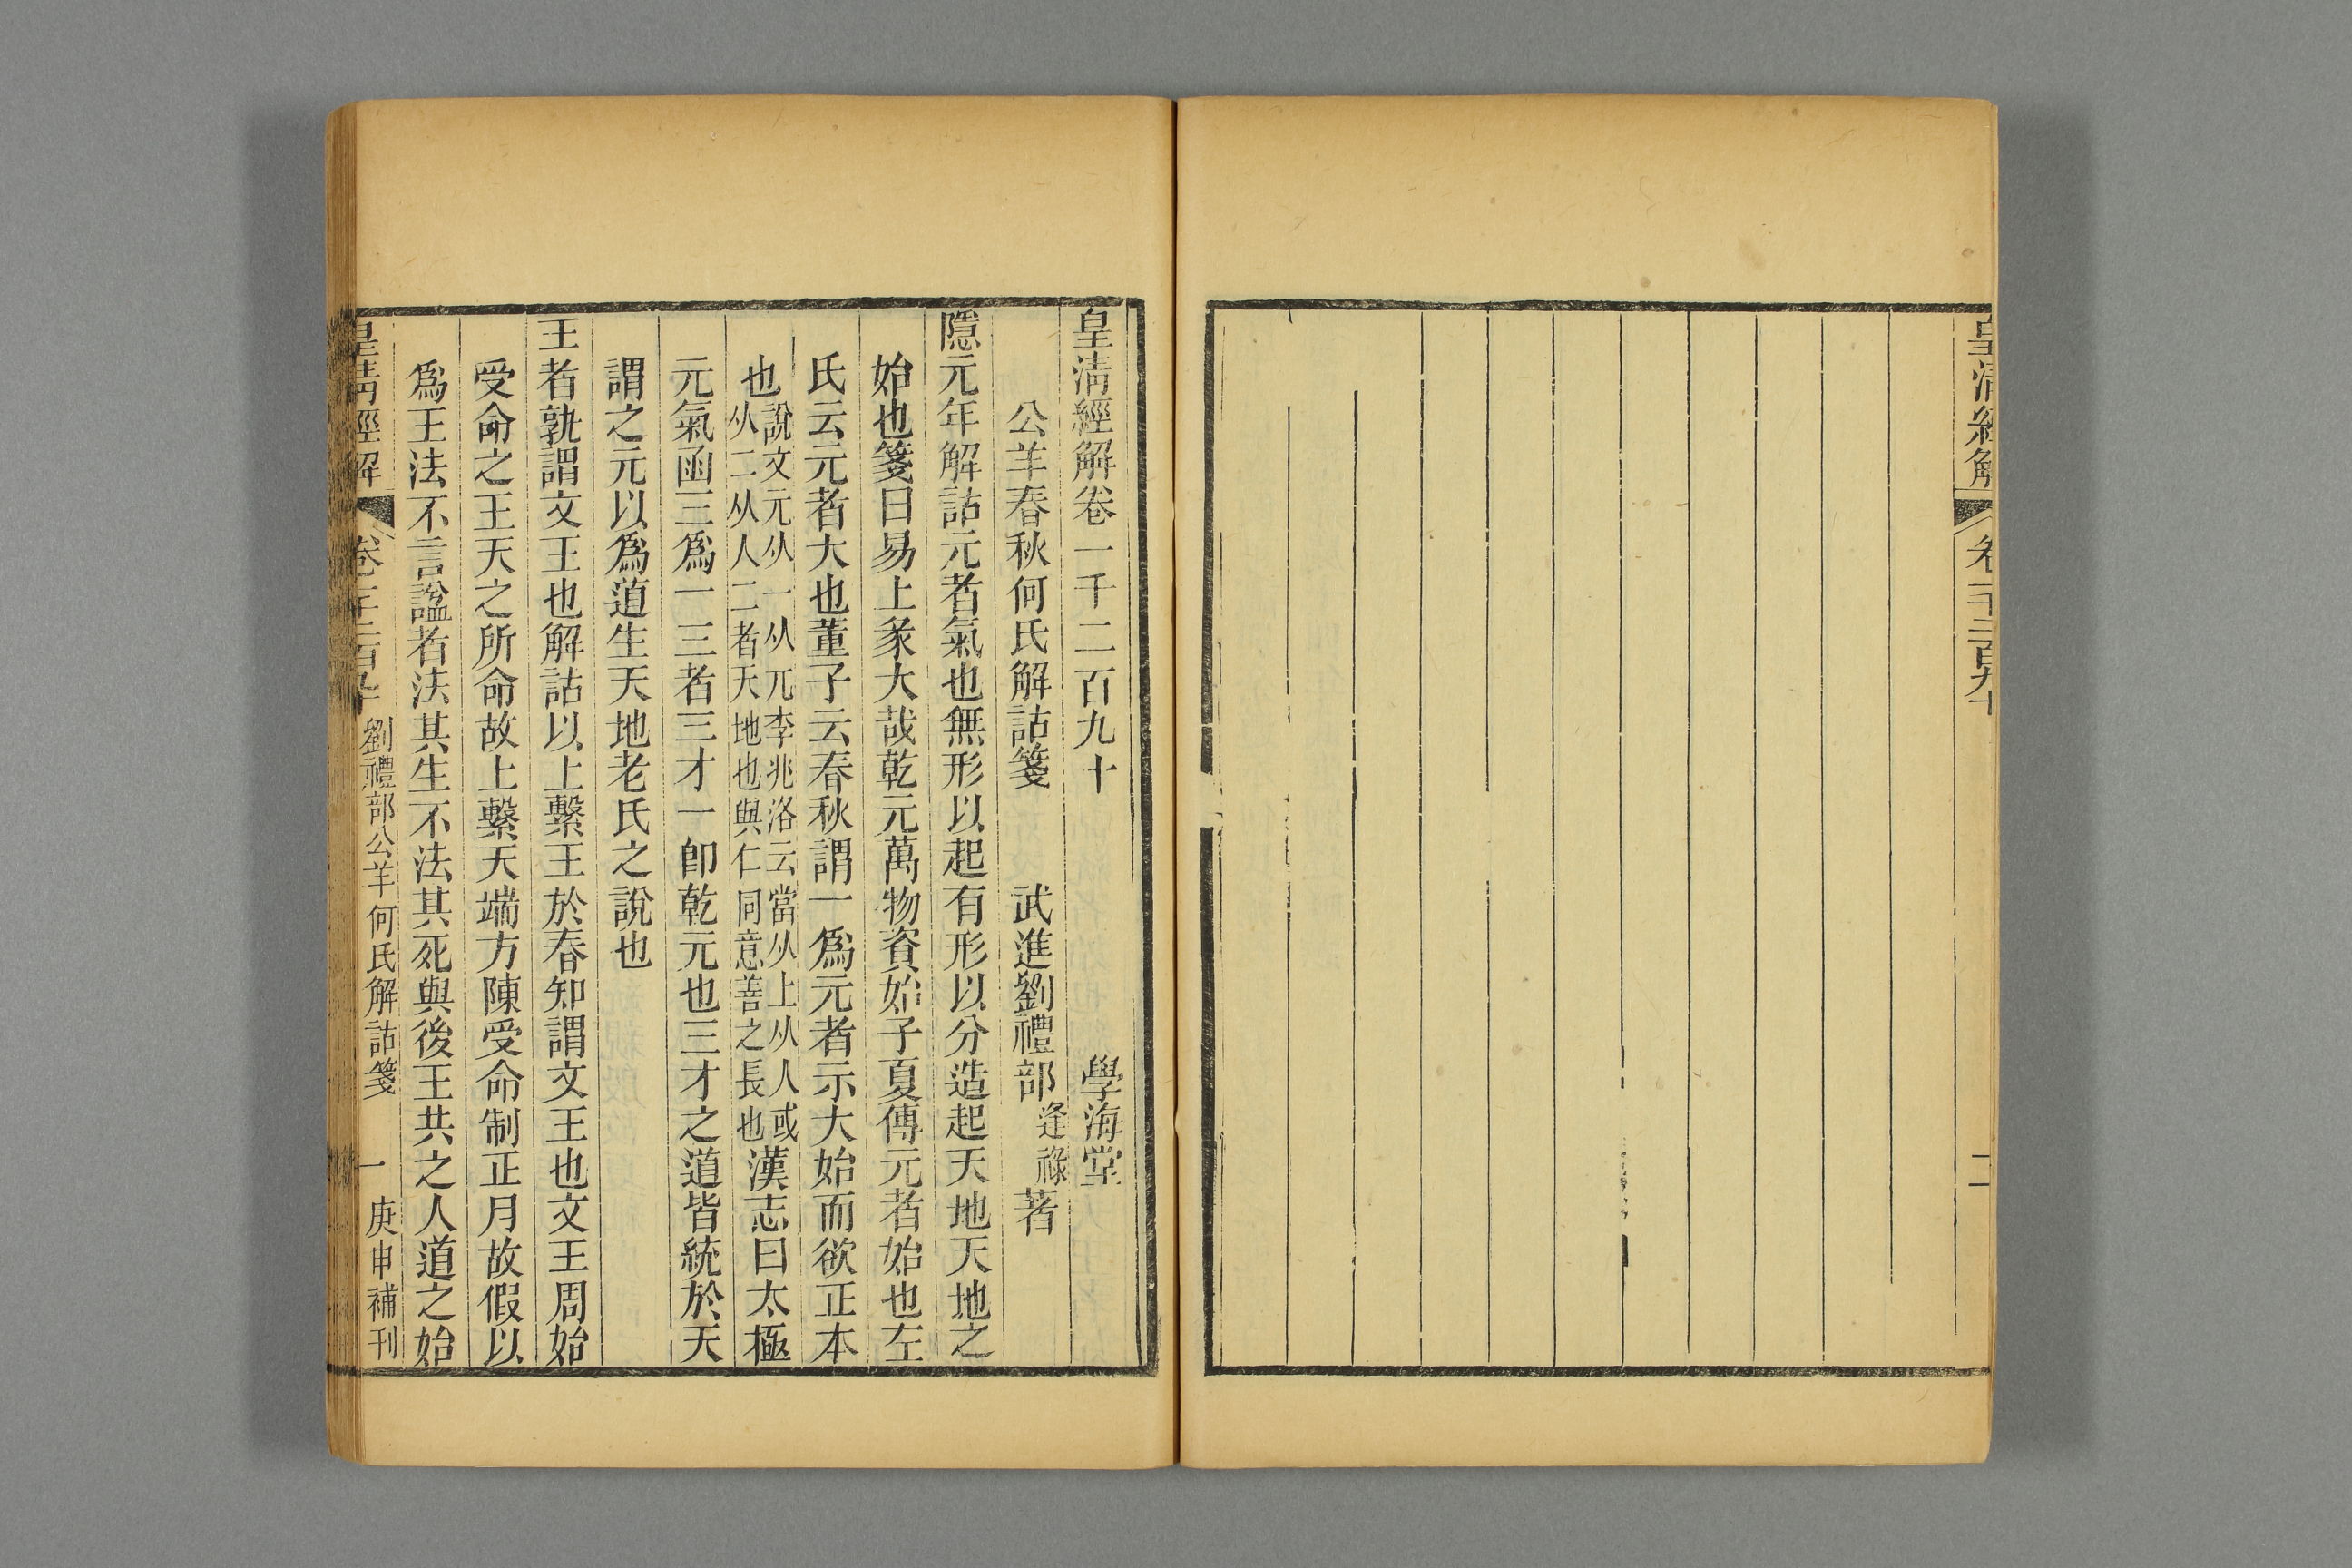 皇清經解
皇清經解卷一千二百九十　學海堂
公羊春秋何氏解詁箋　武進劉禮部逢祿著
隱元年解詁元者氣也無形以起有形以分造起天地天地之
始也箋曰易上彖大哉乾元萬物資始子夏傳元者始也左
氏云元者大也董子云春秋謂一爲元者示大始而欲正本
也說文元从一从兀李兆洛云當从上从人或
从二从人二者天地也與仁同意善之長也漢志曰太極
元氣函三爲一三者三才一卽乾元也三才之道皆統於天
謂之元以爲道生天地老氏之說也
王者孰謂文王也解詁以上繫王於春知謂文王也文王周始
受命之王天之所命故上繫天端方陳受命制正月故假以
爲王法不言諡者法其生不法其死與後王共之人道之始
皇清經解　卷一千二百九十　劉禮部公羊何氏解詁箋　一　庚申補刊